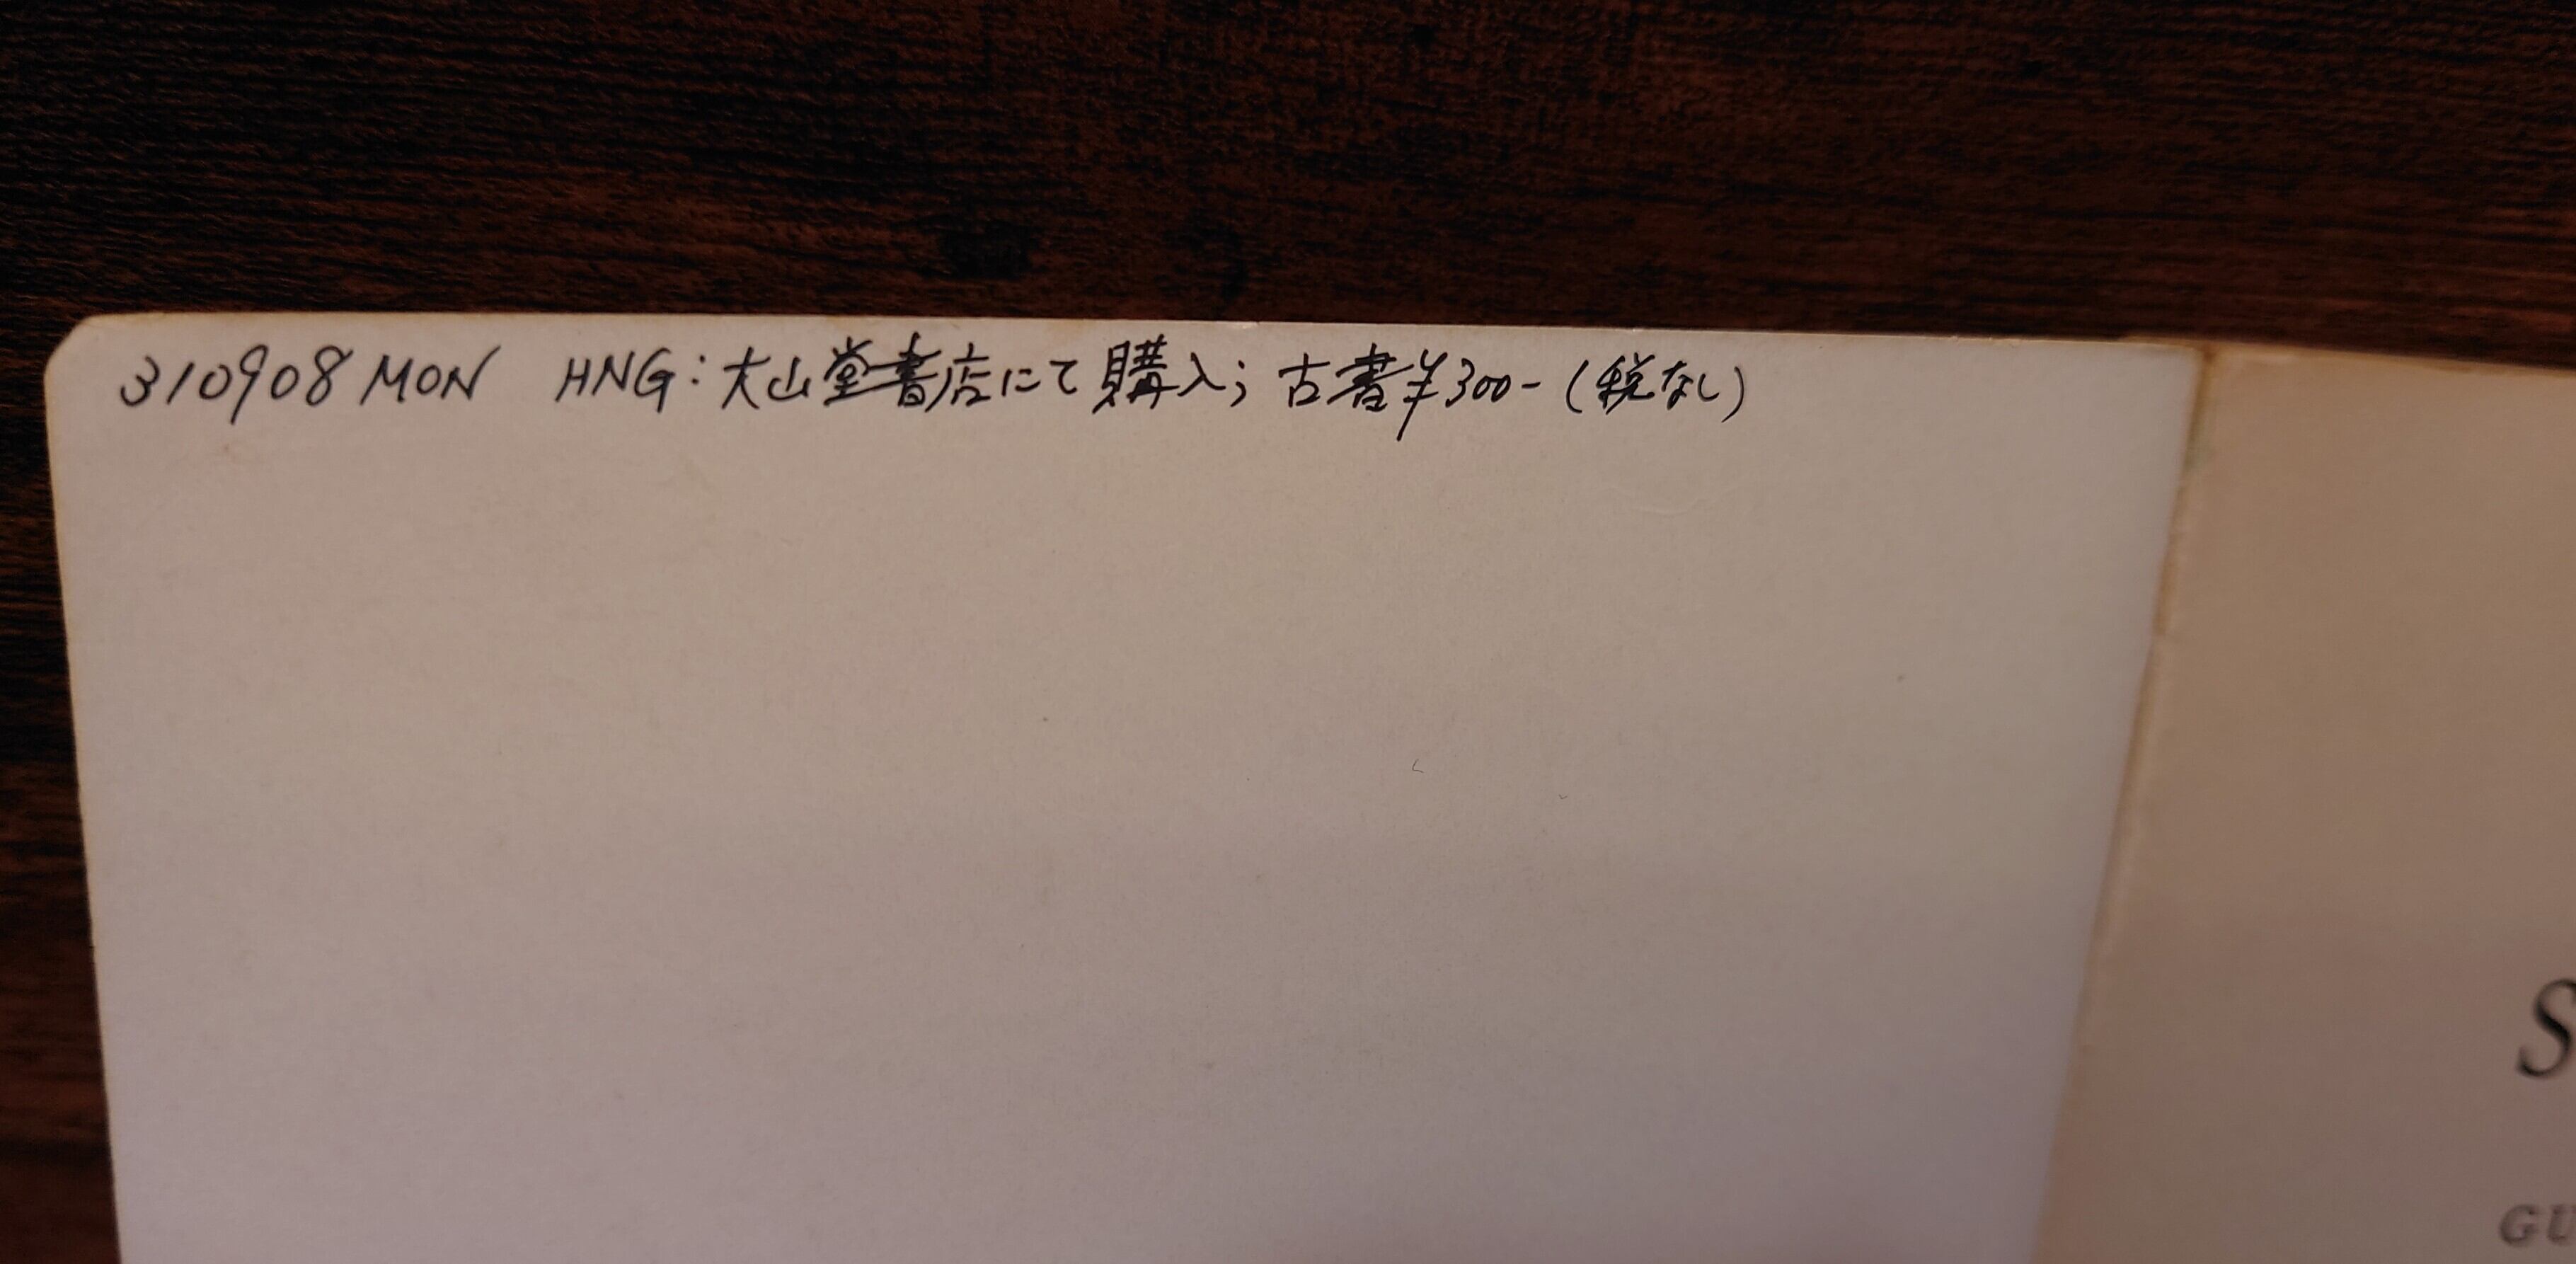 310908 MON HNG:大山堂書店にて購入; 古書¥300-(税なし)
S
GU